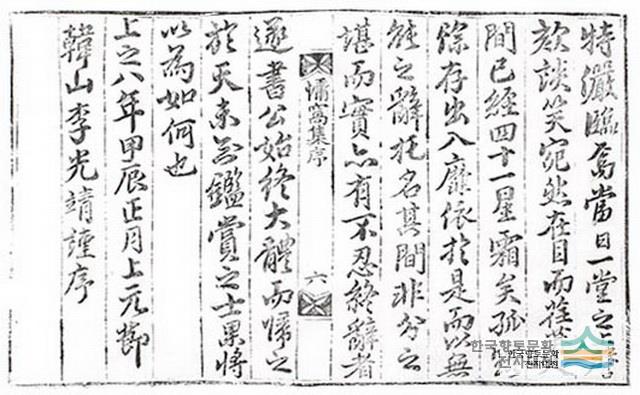 特嚴臨焉當日一堂之
款談笑宛然在目而荏
間已經四十一星霜矣孤
餘存出入靡依於是而以無
能之辭托名其間非分之
諶而實亦有不忍終辭者
慵窩集序
六
遂書公始終大體而歸之
於天未知鑑賞之士果將
以為如何也
上之八年甲辰正月上元節
韓山李光靖謹序
한국향토문화
전자대전